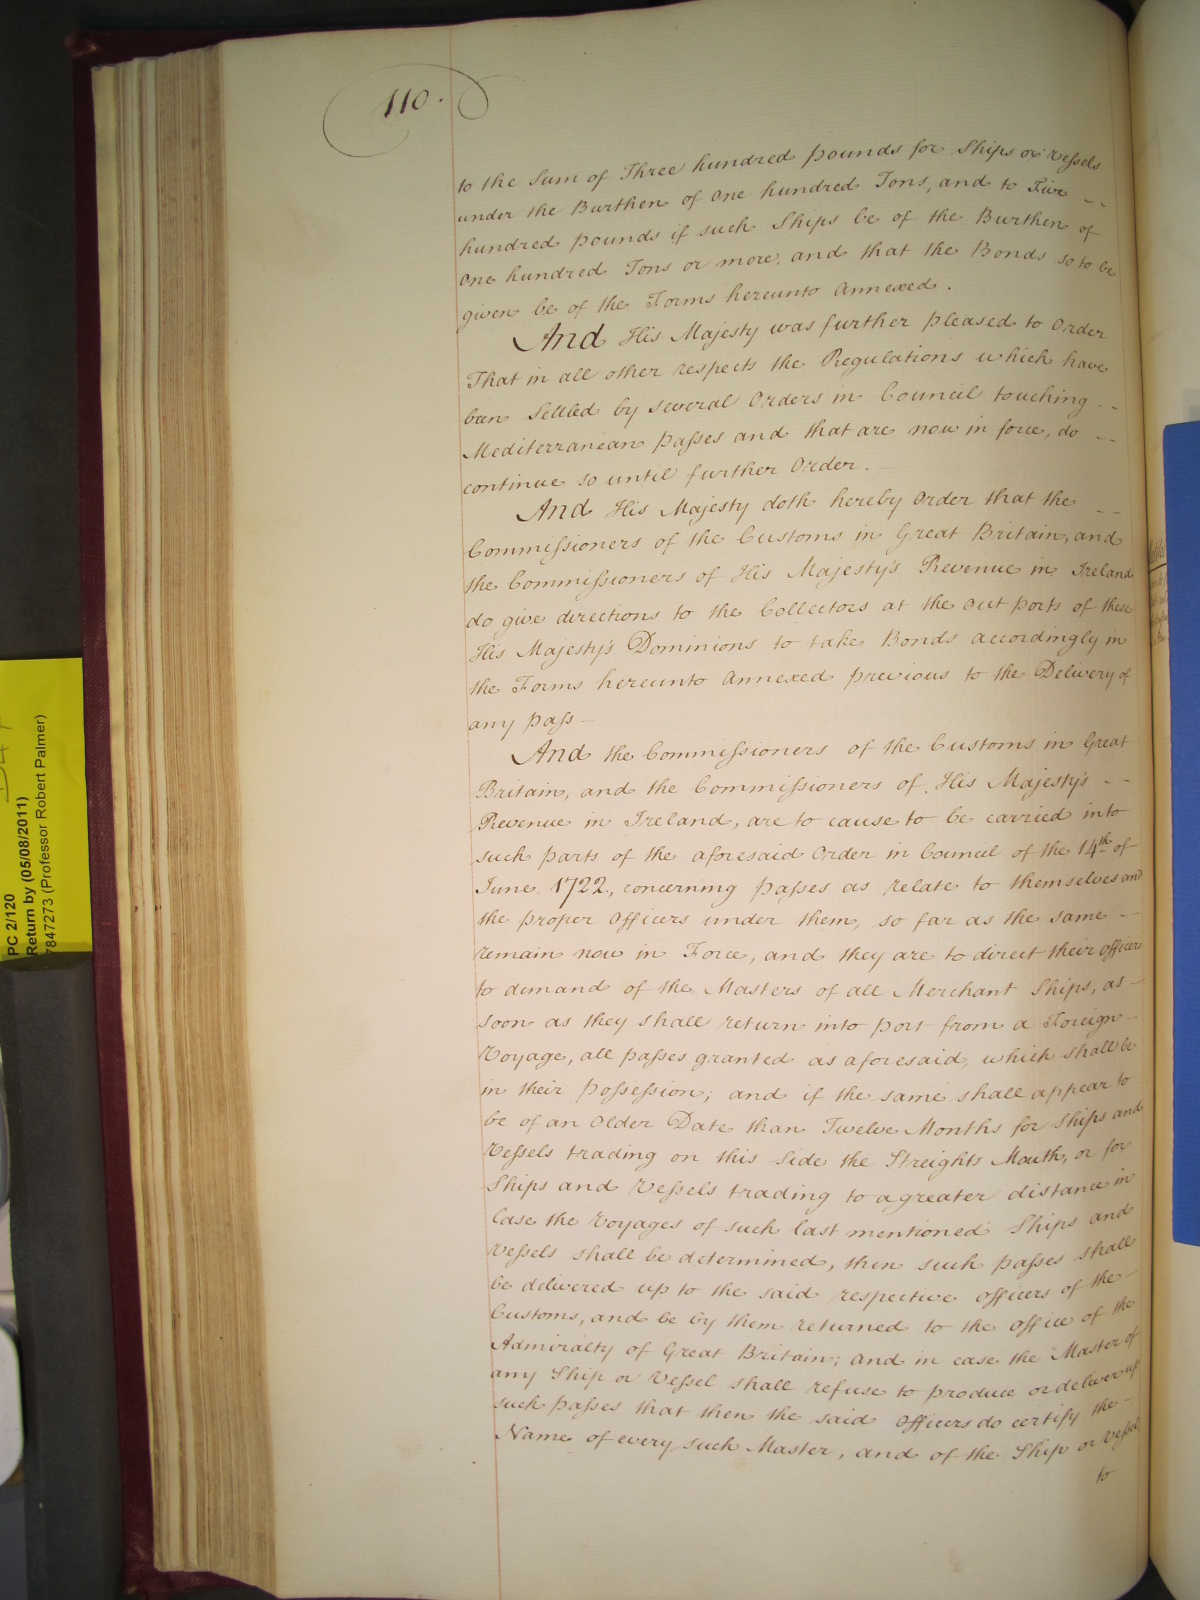 110.
to the Sum of Three hundred pounds for Ships or Vessels
under the Burthen of One hundred Tons, and to Five --
hundred pounds if such Ships be of the Burthen of
One hundred Tons or more, and that the Bonds so to be
given be of the Forms hereunto Annexed.
And His Majesty was further pleased to Order
That in all other respects the Regulations which have
been Settled by several Orders in Council touching --
Mediterranean passes and that are now in force, do --
continue so until further Order. -
And His Majesty doth hereby Order that the --
Commissioners of the Customs in Great Britain, and
the Commissioners of His Majesty's Revenue in Ireland
do give directions to the Collectors at the Out ports of these
His Majesty's Dominions to take Bonds accordingly in
the Forms hereunto Annexed previous to the Delivery of
any pass -
And the Commissioners of the Customs in Great
Britain, and the Commissioners of His Majesty's --
Revenue in Ireland, are to cause to be carried into
such parts of the aforesaid Order in Council of the 14th of
June 1722, concerning passes as relate to themselves and
the proper Officers under them, so far as the same -
remain now in Force, and they are to direct their officers
to demand of the Masters of all Merchant Ships, as -
soon as they shall return into port from a Foreign -
Voyage, all passes granted as aforesaid, which shall be
in their possession; and if the same shall appear to
be of an Older Date than Twelve Months for Ships and
Vessels trading on this Side the Streights Mouth, or for
Ships and Vessels trading to a greater distance in
Case the Voyages of such last mentioned Ships and
Vessels shall be determined, then such passes shall
be delivered up to the said respective Officers of the -
Customs, and be by them returned to the Office of the
Admiralty of Great Britain; and in case the Master of
any Ship or Vessel shall refuse to produce or deliver up
such passes that then the said Officers do certify the -
Name of every such Master, and of the Ship or Vessel,
to
PC 2/120
Return by (05/08/2011)
7847273 (Professor Robert Palmer)